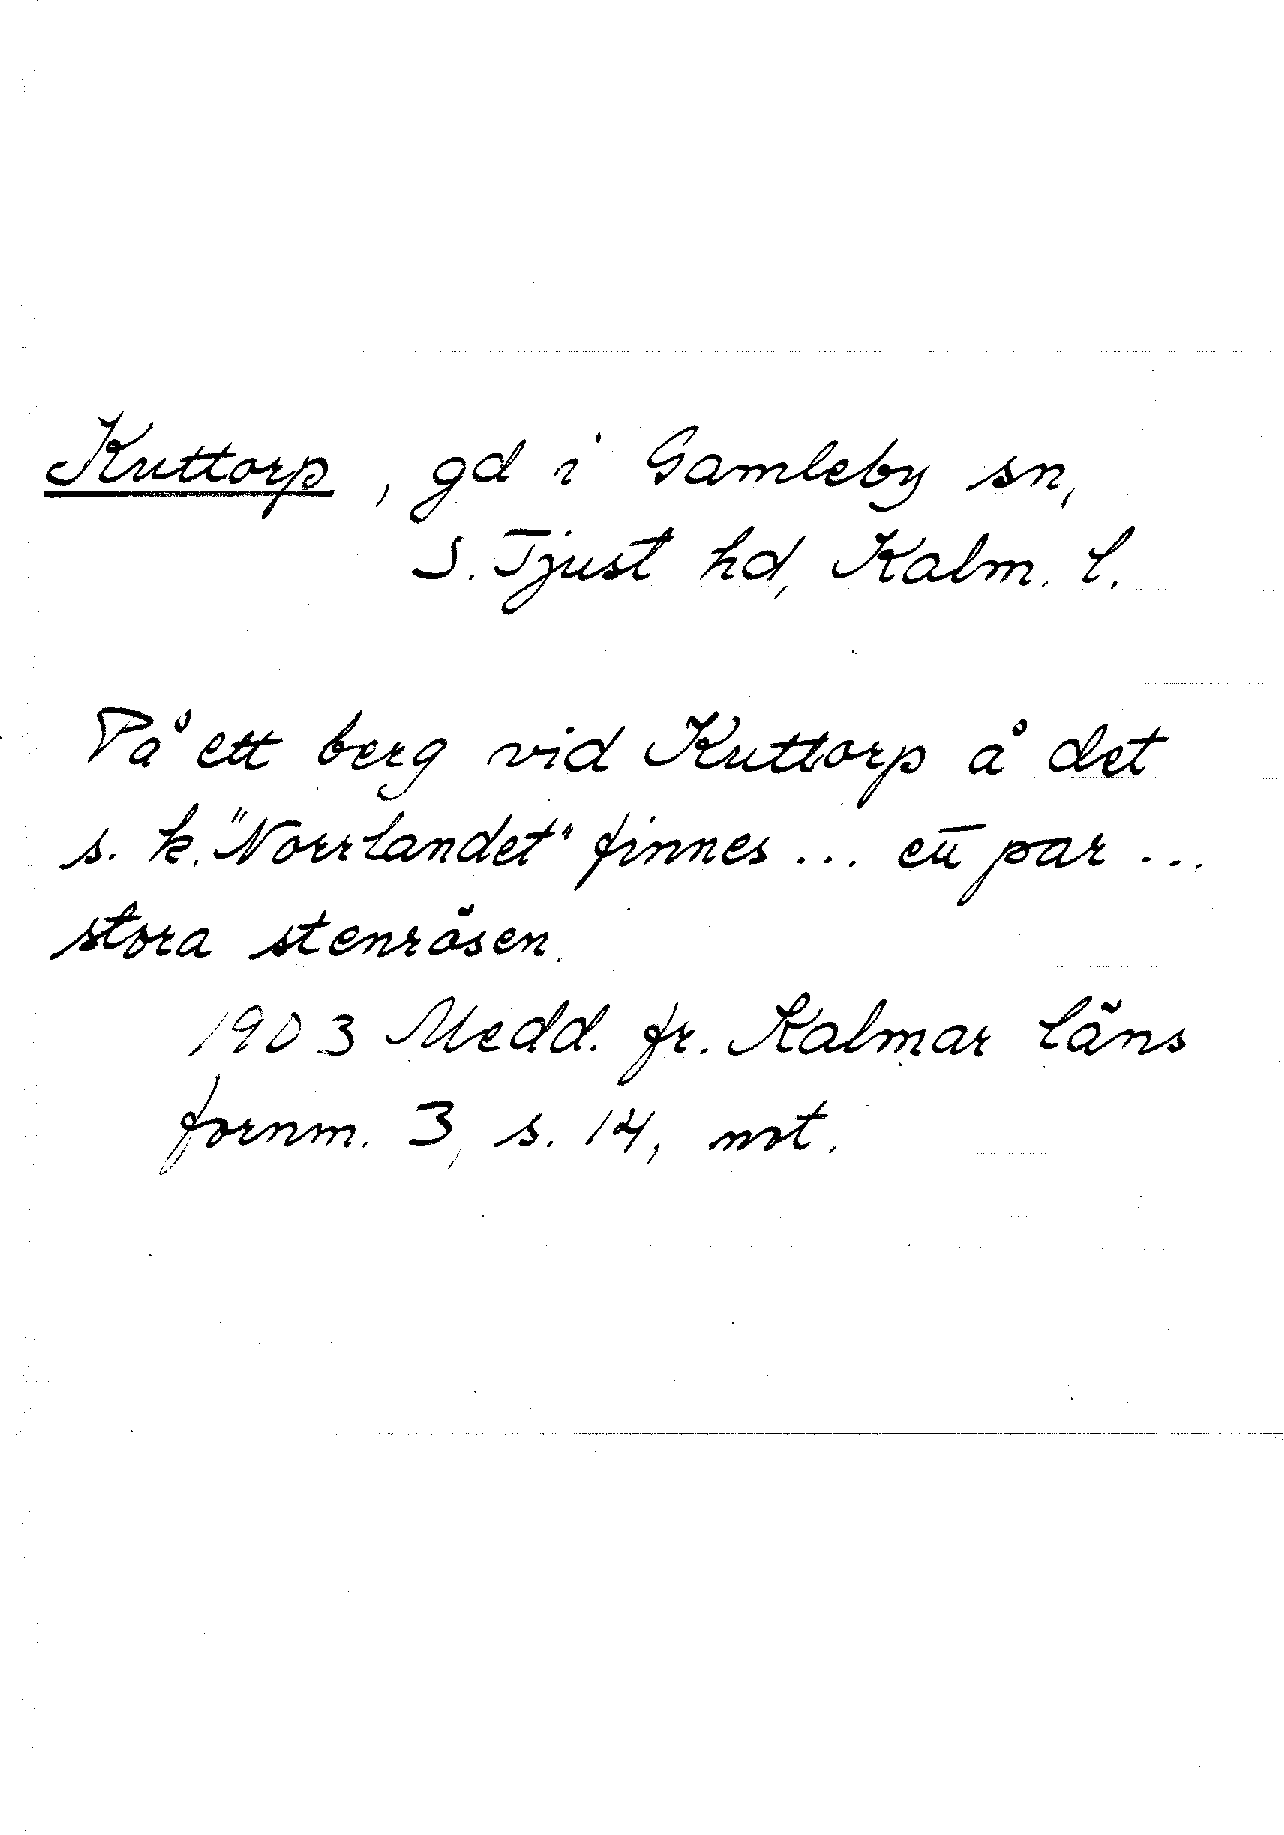 Kuttorp, gd i Gamleby sn,
S. Tjust hd, Kalm. l.
På ett berg vid Kuttorp å det
s. k. "Norrlandet" finnes ... ett par ...
stora stenrösen.
1903 Medd. fr. Kalmar läns
fornm. 3, s. 14, not.